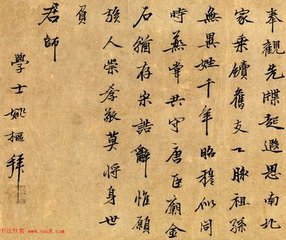 奉觀先牒起遐思南北
家乘續舊支一脈祖孫
無異姓千年昭穆似同
時蒸嘗共守唐臣廟金
石猶存宋誥辭惟願
族人崇孝敬莫將身世
負
君師
學士姚樞拜